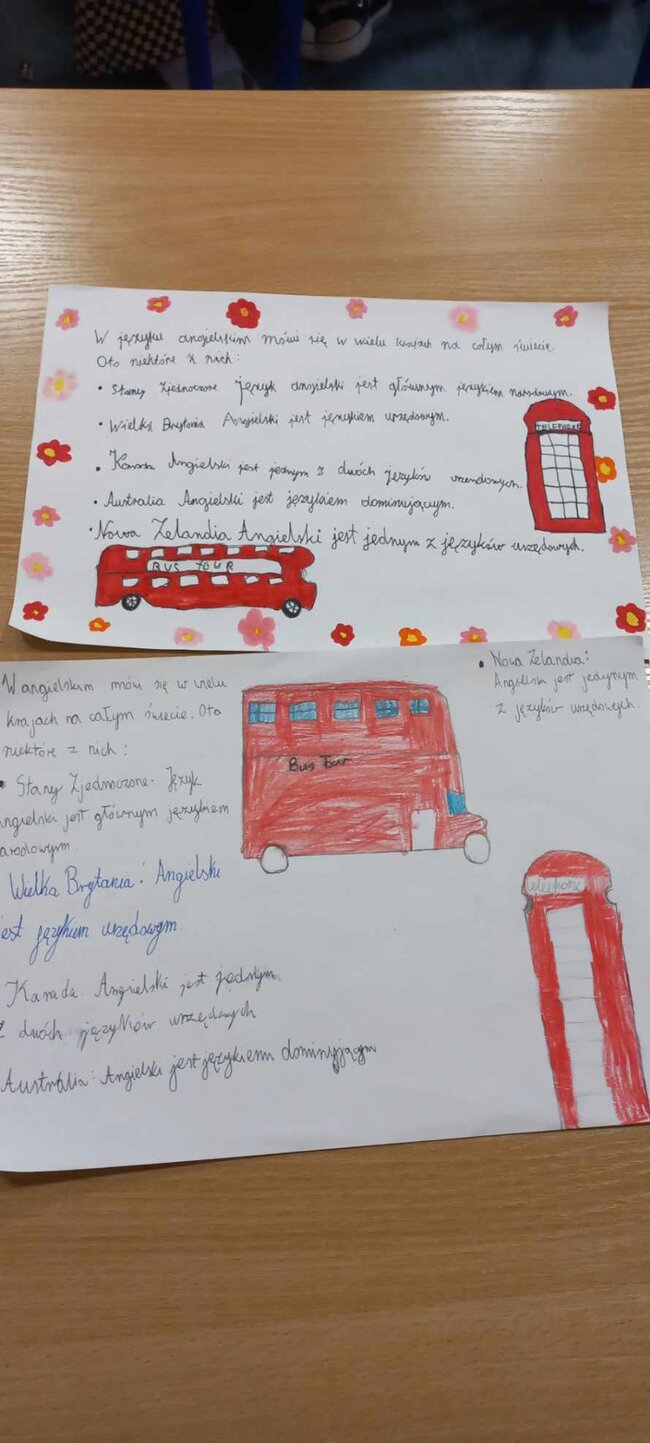 W języku angielskim mówi się w wielu krajach na całym świecie.
Oto niektóre z nich:
• Stany Zjednoczone Język angielski jest głównym językiem narodowym.
• Wielka Brytania Angielski jest językiem urzędowym.
• Kanada Angielski jest jednym z dwóch języków urzendowych.
• Australia Angielski jest językiem dominującym.
• Nowa Zelandia Angielski jest jednym z języków urzędowych.
TELEPHONE
BUS TOUR
W angielskim mówi się w wielu
krajach na całym świecie. Oto
niektóre z nich:
• Stany Zjednoczone. Język
angielski jest głównym językiem
narodowym
Wielka Brytania: Angielski
jest językiem urzędowym.
Kanada. Angielski jest jednym
z dwóch języków urzędowych
Australia: Angielski jest językiem dominującym
Bus Tour
• Nowa Zelandia:
Angielski jest jedynym
z języków urzędowych.
telephone